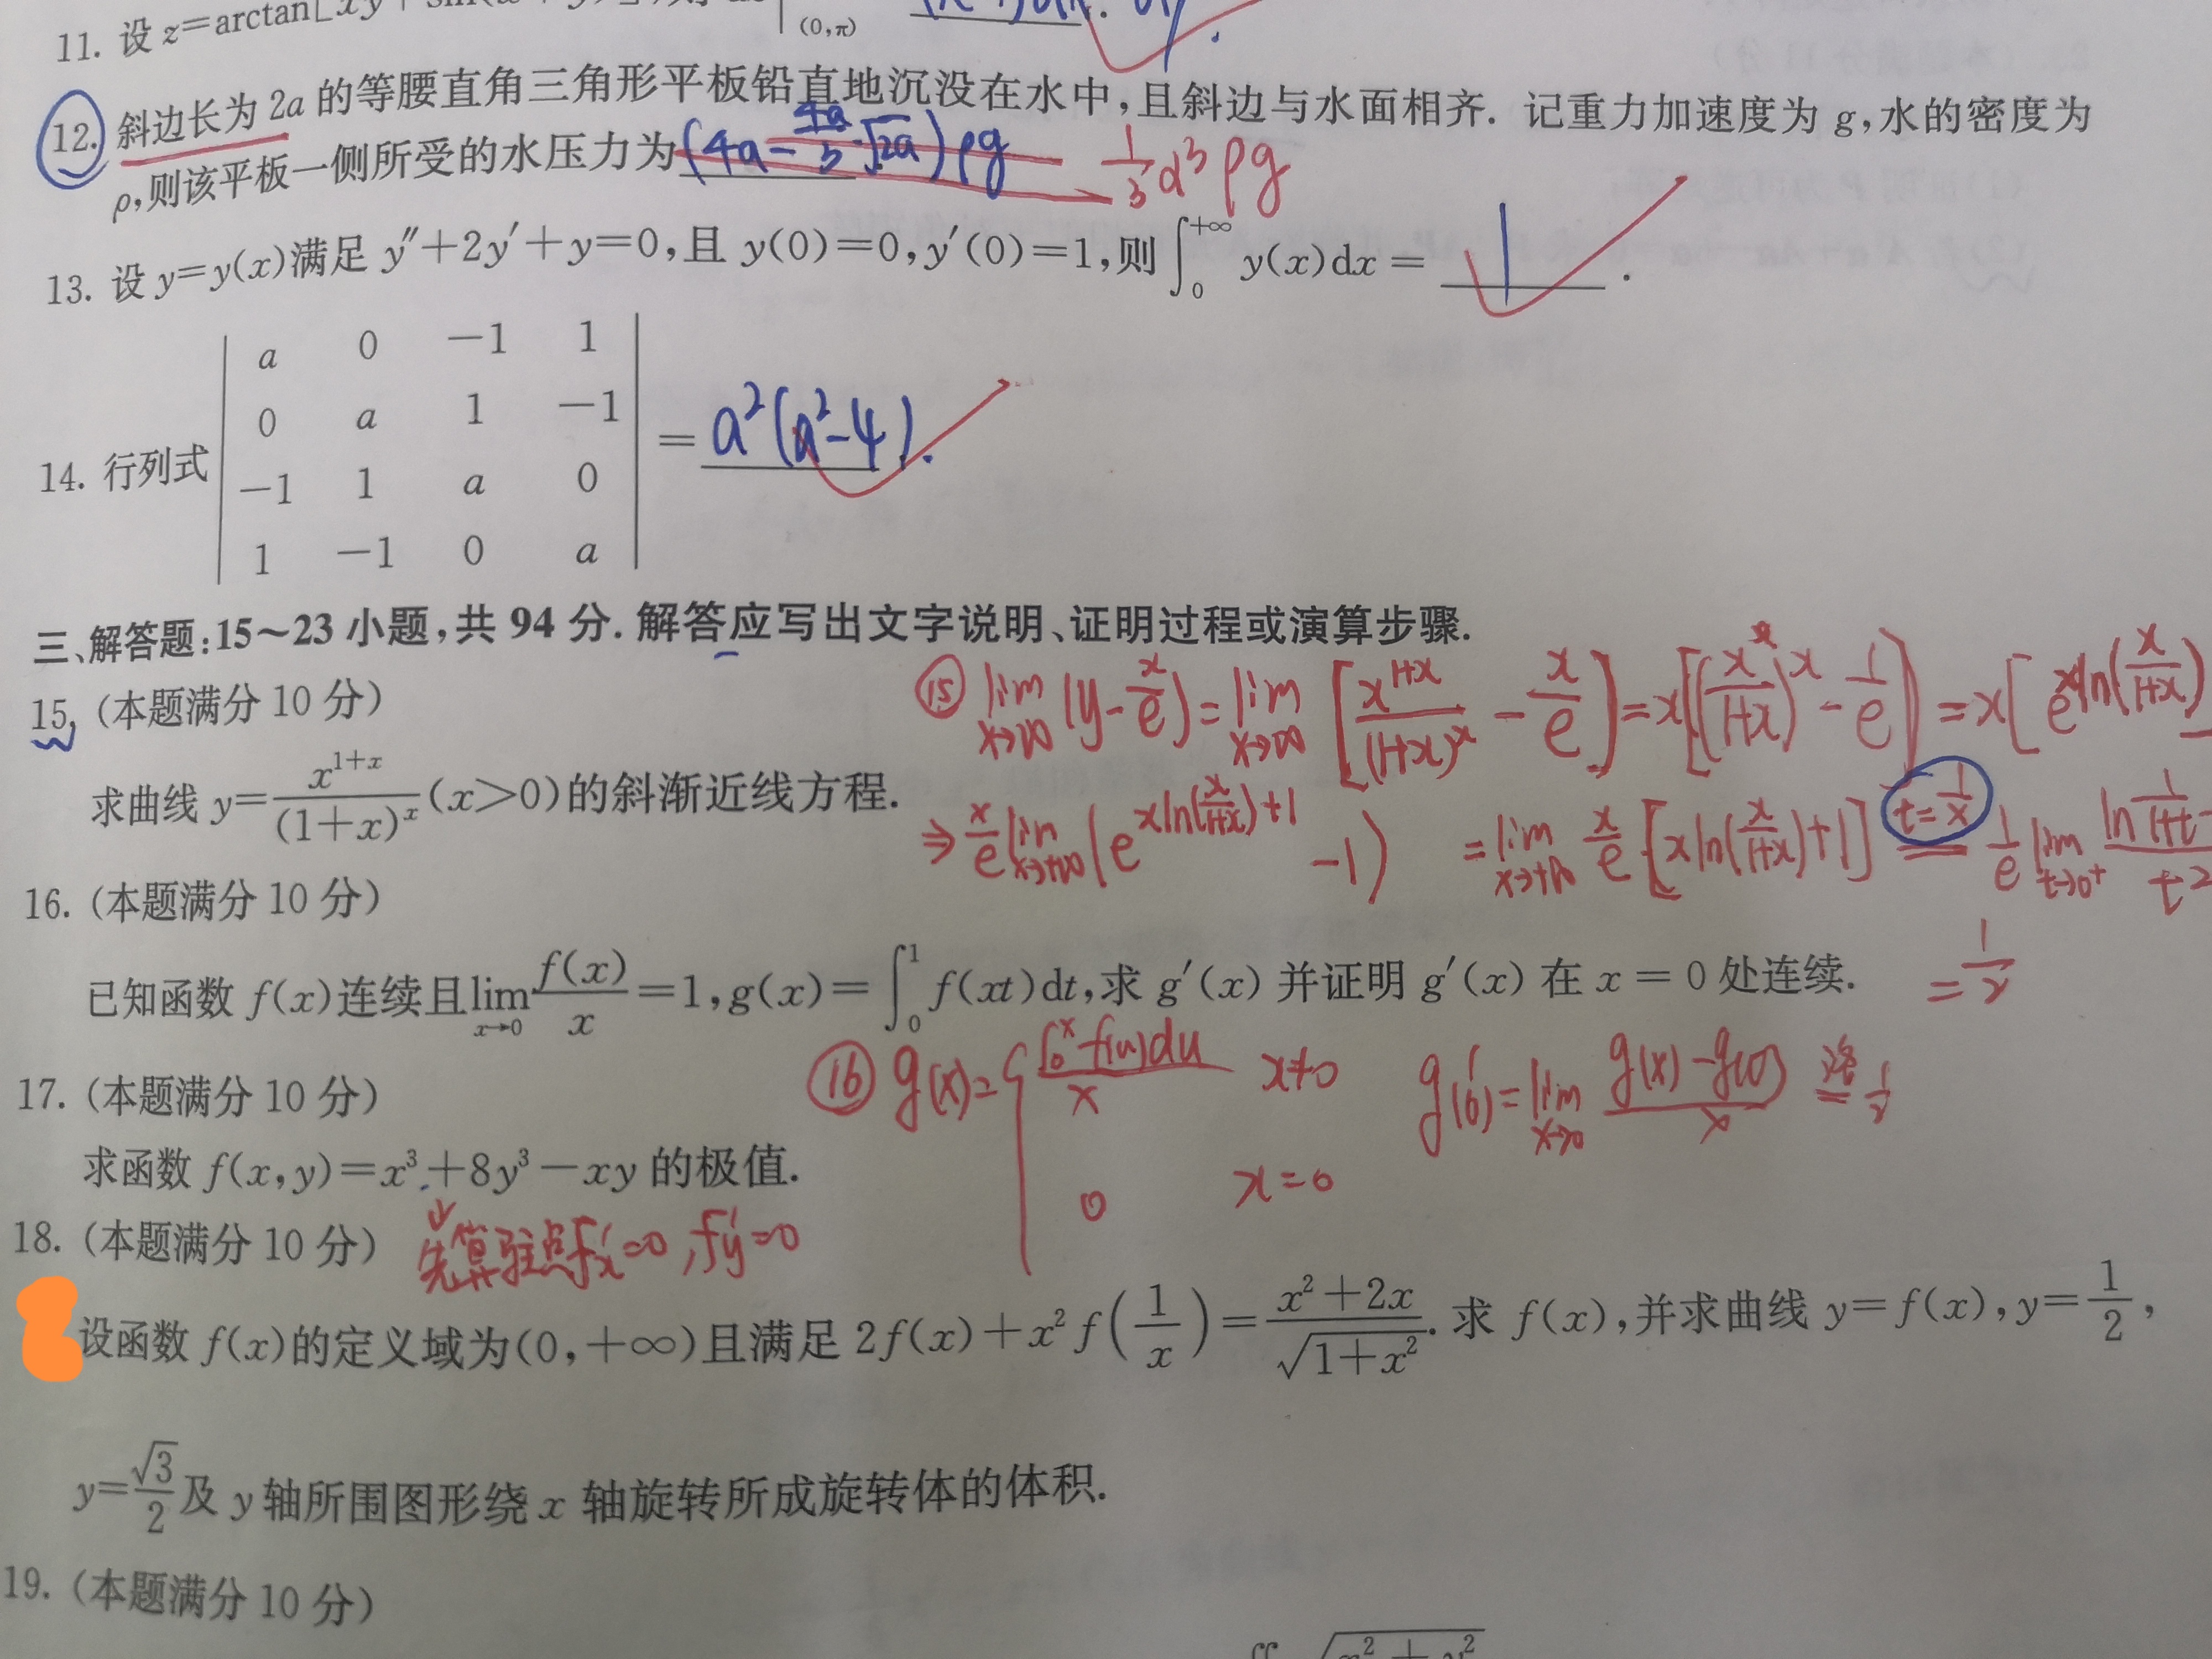 11. 设 z=arctan[xy+sin(x+y)], 则 |(0,π)
12. 斜边长为 2a 的等腰直角三角形平板铅直地沉没在水中,且斜边与水面相齐. 记重力加速度为 g,水的密度为
ρ,则该平板一侧所受的水压力为 1/3 a³ρg
13. 设 y=y(x)满足 y″+2y′+y=0,且 y(0)=0,y′(0)=1,则∫₀^{+∞} y(x)dx= 1 .
a 0 −1 1
0 a 1 −1
14. 行列式 = a²(a²−4).
−1 1 a 0
1 −1 0 a
三、解答题:15~23 小题,共 94 分. 解答应写出文字说明、证明过程或演算步骤.
15. (本题满分 10 分)
⑮ lim x→∞ (y−x/e)=lim x→∞ [x^{1+x}/(1+x)^x − x/e]=x[(x/(1+x))^x − 1/e]=x[e^{xln(x/(1+x))} −
求曲线 y=x^{1+x}/(1+x)^x (x>0)的斜渐近线方程.
⇒ x/e lim x→+∞ (e^{xln(x/(1+x))+1} −1) =lim x→+∞ x/e·[xln(x/(1+x))+1] t=1/x = 1/e lim t→0⁺ ln 1/(1+t) / t²
=1/2
16. (本题满分 10 分)
已知函数 f(x)连续且lim x→0 f(x)/x=1,g(x)=∫₀¹ f(xt)dt,求 g′(x) 并证明 g′(x) 在 x = 0 处连续.
⑯ g(x)={ ∫₀ˣ f(u)du / x x≠0 g′(0)=lim x→0 (g(x)−g(0))/x 洛= 1/2
0 x=0
17. (本题满分 10 分)
求函数 f(x,y)=x³+8y³−xy 的极值.
先算驻点f′x=0,f′y=0
18. (本题满分 10 分)
设函数 f(x)的定义域为(0,+∞)且满足 2f(x)+x²f(1/x)=(x²+2x)/√(1+x²). 求 f(x),并求曲线 y=f(x),y=1/2,
y=√3/2 及 y 轴所围图形绕 x 轴旋转所成旋转体的体积.
19. (本题满分 10 分)